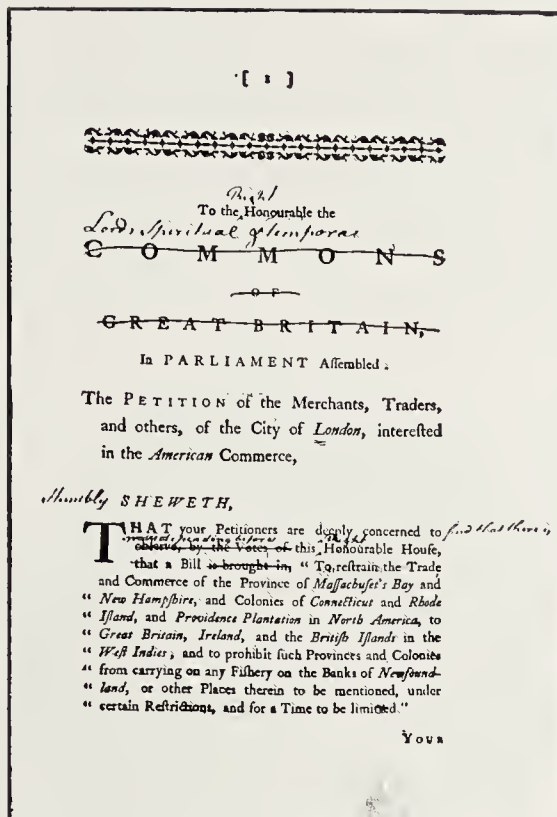 [ 1 ]
Right
To the Honourable the
Lords Spiritual & temporal
COMMONS
OF
GREAT BRITAIN,
In PARLIAMENT Aſſembled.
The PETITION of the Merchants, Traders,
and others, of the City of London, intereſted
in the American Commerce,
Humbly SHEWETH,
THAT your Petitioners are deeply concerned to find that there is
now depending before Right
obſerve, by the Votes of this Honourable Houſe,
that a Bill is brought in, “ To reſtrain the Trade
and Commerce of the Province of Maſſachuſet's Bay and
“ New Hampſhire, and Colonies of Connecticut and Rhode
“ Iſland, and Providence Plantation in North America, to
“ Great Britain, Ireland, and the Britiſh Iſlands in the
“ Weſt Indies; and to prohibit ſuch Provinces and Colonies
“ from carrying on any Fiſhery on the Banks of Newfound-
“ land, or other Places therein to be mentioned, under
“ certain Reſtrictions, and for a Time to be limited.”
YOUR